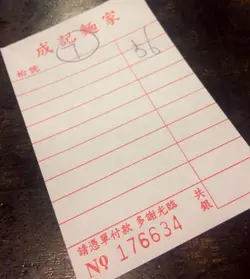 成記麵家
枱號 1 56
請憑單付款 多謝光臨
共銀
№ 176634